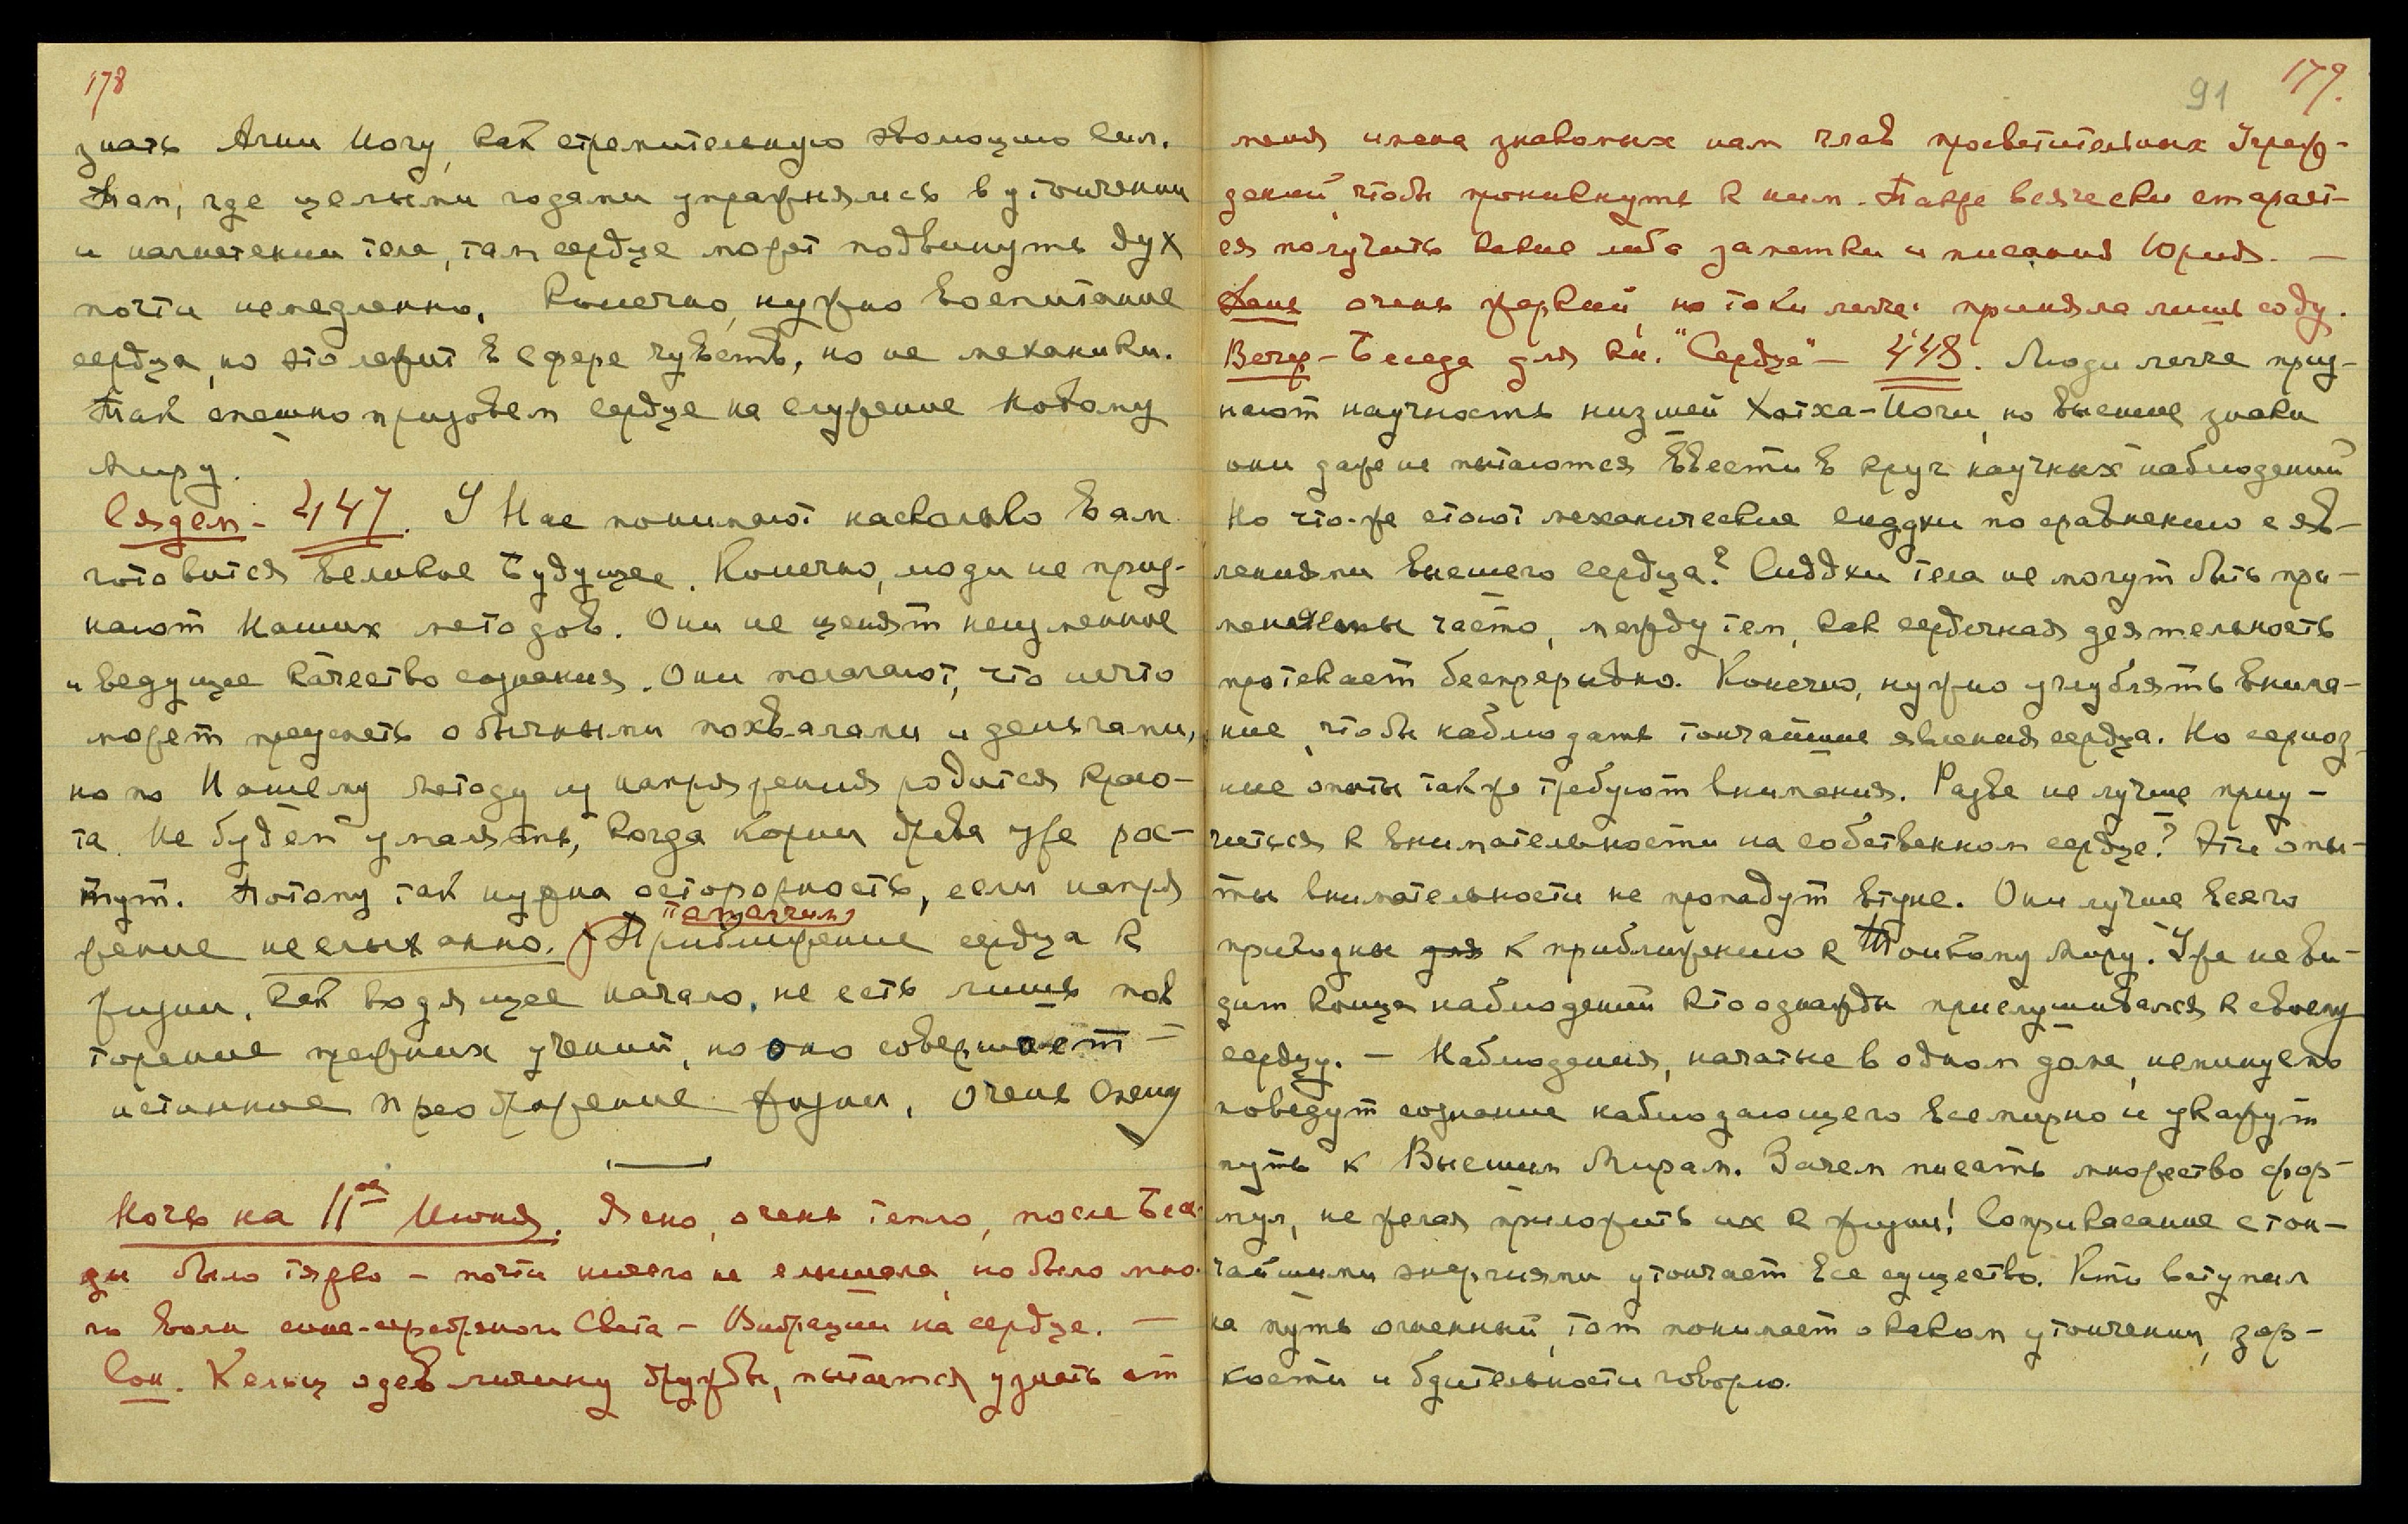 178
знать Агни Йогу, как стремительную эволюцию сил.
Там, где целыми годами упражнялись в утончении
и нагнетении тела, там сердце может подвинуть дух
почти немедленно. Конечно, нужно воспитание
сердца, но это лежит в сфере чувств, но не механики.
Так спешно призовем сердце на служение Новому
Миру.
Сядем - 447. У Нас понимают насколько Вам
готовится великое Будущее. Конечно, люди не приз-
нают Наших методов. Они не ценят неизменное
и ведущее качество сознания. Они полагают, что нечто
может преуспеть обычными похвалами и деньгами,
но по Нашему методу из напряжения родится красо-
та. Не будем умалять, когда корни древа уже рас-
тут. Потому так нужна осторожность, если напря
жение неслыханно. Приближение сердца к
жизни, как водящее начало, не есть лишь пов
торение прежних учений, но оно совершает
истинное преображение жизни.
Ночь на 11ое Июня. Ясно, очень тепло, после Бесе-
ды было тяжко - почти ничего не слышала, но было мно-
го волн сине-серебряного Света - Вибрации на сердце. —
Сон. Кельц одев личину дружбы, пытается узнать от
91
179.
меня имена знакомых нам глав просветительных Учреж-
дений, чтобы проникнуть к ним. Также всячески старает-
ся получить какие либо заметки и писания Юрия. —
День очень жаркий, но токи легче: приняла лишь соду.
Вечер - Беседа для кн. "Сердце" - 448. Люди легче приз-
нают научность низшей Хатха-Йоги, но высшие знаки
они даже не пытаются ввести в круг научных наблюдений
Но что-же стоют механические сиддхи по сравнению с яв-
лениями высшего сердца? Сиддхи тела не могут быть при-
менены часто, между тем, как сердечная деятельность
протекает беспрерывно. Конечно, нужно углублять внима-
ние, чтобы наблюдать тончайшие явления сердца. Но сериоз
ные опыты также требуют внимания. Разве не лучше приу-
читься к внимательности на собственном сердце? Эти опы-
ты внимательности не пропадут втуне. Они лучше всего
пригодны для к приближению к Тонкому Миру. Уже не ви-
дит конца наблюдений кто однажды прислушивался к своему
сердцу. - Наблюдения, начатые в одном доме, неминуемо
поведут сознание наблюдающего всемирно и укажут
путь к Высшим Мирам. Зачем писать множество фор-
мул, не желая приложить их к жизни! Соприкасание с тон-
чайшими энергиями утончает все существо. Кто вступил
на путь огненный, тот понимает о каком утончении, зор-
кости и бдительности говорю.